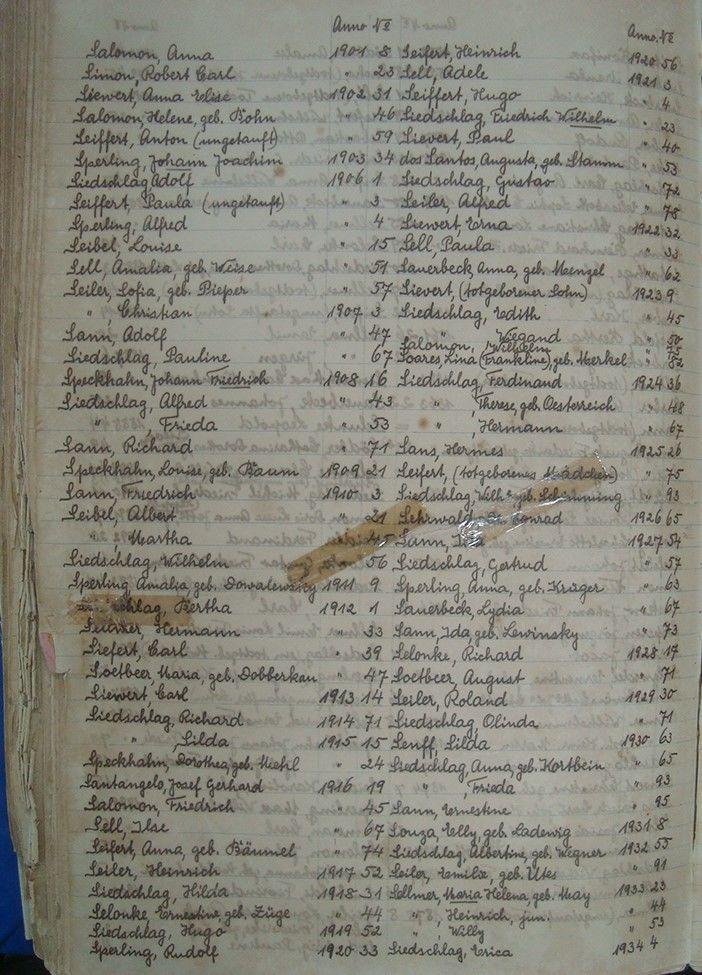 Anno № Anno. №
Salomon, Anna 1901 8 Seifert, Heinrich 1920 56
Simon, Robert Carl " 23 Sell, Adele 1921 3
Siewert, Anna Elise 1902 31 Seiffert, Hugo " 4
Salomon, Helene, geb. Böhn " 46 Siedschlag, Friedrich Wilhelm " 23
Seiffert, Anton (ungetauft) " 59 Sievert, Paul " 40
Sperling, Johann Joachim 1903 34 dos Santos, Augusta, geb. Stamm " 53
Siedschlag Adolf 1906 1 Siedschlag, Gustav " 72
Seiffert, Paula (ungetauft) " 3 Seiler, Alfred " 78
Sperling, Alfred " 4 Siewert, Erna 1922 32
Seibel, Louise " 15 Sell, Paula " 33
Sell, Amalia, geb. Weise " 51 Sauerbeck, Anna, geb. Mengel " 62
Seiler, Sofia, geb. Pieper " 57 Sievert, (totgeborener Sohn) 1923 9
" , Christian 1907 3 Siedschlag, Edith " 45
Sann, Adolf " 47 " Wiegand " 50
Salomon, Wilhelm " 75
Siedschlag, Pauline " 67 Soares, Lina (Frankline), geb. Merkel " 82
Speckhahn, Johann Friedrich 1908 16 Siedschlag, Ferdinand 1924 36
Siedschlag, Alfred " 43 " , Therese, geb. Oesterreich " 48
" , Frieda " 53 " , Hermann " 67
Sann, Richard " 71 Sans, Hermes 1925 26
Speckhahn, Louise, geb. Baum 1909 21 Seifert, (totgeborenes Mädchen) " 75
Sann, Friedrich 1910 3 Siedschlag, Wilh. geb. " 93
Seibel, Albert " 21 Sehrwald, Conrad 1926 65
" , Martha " 45 Sann, 1927 54
Siedschlag, Wilhelm " 56 Siedschlag, Gertrud " 57
Sperling Amalia geb. Dowalewsky 1911 9 Sperling, Anna, geb. Krüger " 63
schlag, Bertha 1912 1 Sauerbeck, Lydia " 67
Hermann " 33 Sann, Ida, geb. Lewinsky " 73
Siefert, Carl " 39 Selonke, Richard 1928 17
Soetbeer, Maria, geb. Dobberkau " 47 Soetbeer, August " 71
Siewert, Carl 1913 14 Seiler, Roland 1929 30
Siedschlag, Richard 1914 71 Siedschlag, Olinda " 71
" , Silda 1915 15 Senff, Silda 1930 63
Speckhahn, Dorothea, geb. Miehl " 24 Siedschlag, Anna, geb. Kortbein " 65
Santangelo, Josef Gerhard 1916 19 " Frieda " 93
Salomon, Friedrich " 45 Sann, Ernestine " 95
Sell, Ilse " 67 Souza, Elly, geb. Ladewig 1931 8
Seifert, Anna, geb. Bäumel " 74 Siedschlag, Albertine, geb. Wegner 1932 55
Seiler, Heinrich 1917 52 Seiler, Emilie, geb. Utes " 91
Siedschlag, Hilda 1918 31 Sellmer, Maria Helena, geb. May 1933 23
Selonke, Ernestine, geb. Züge " 44 " , Heinrich, jun. " 44
Siedschlag, Hugo 1919 52 " , Willy " 53
Sperling, Rudolf 1920 33 Siedschlag, Erica 1934 4